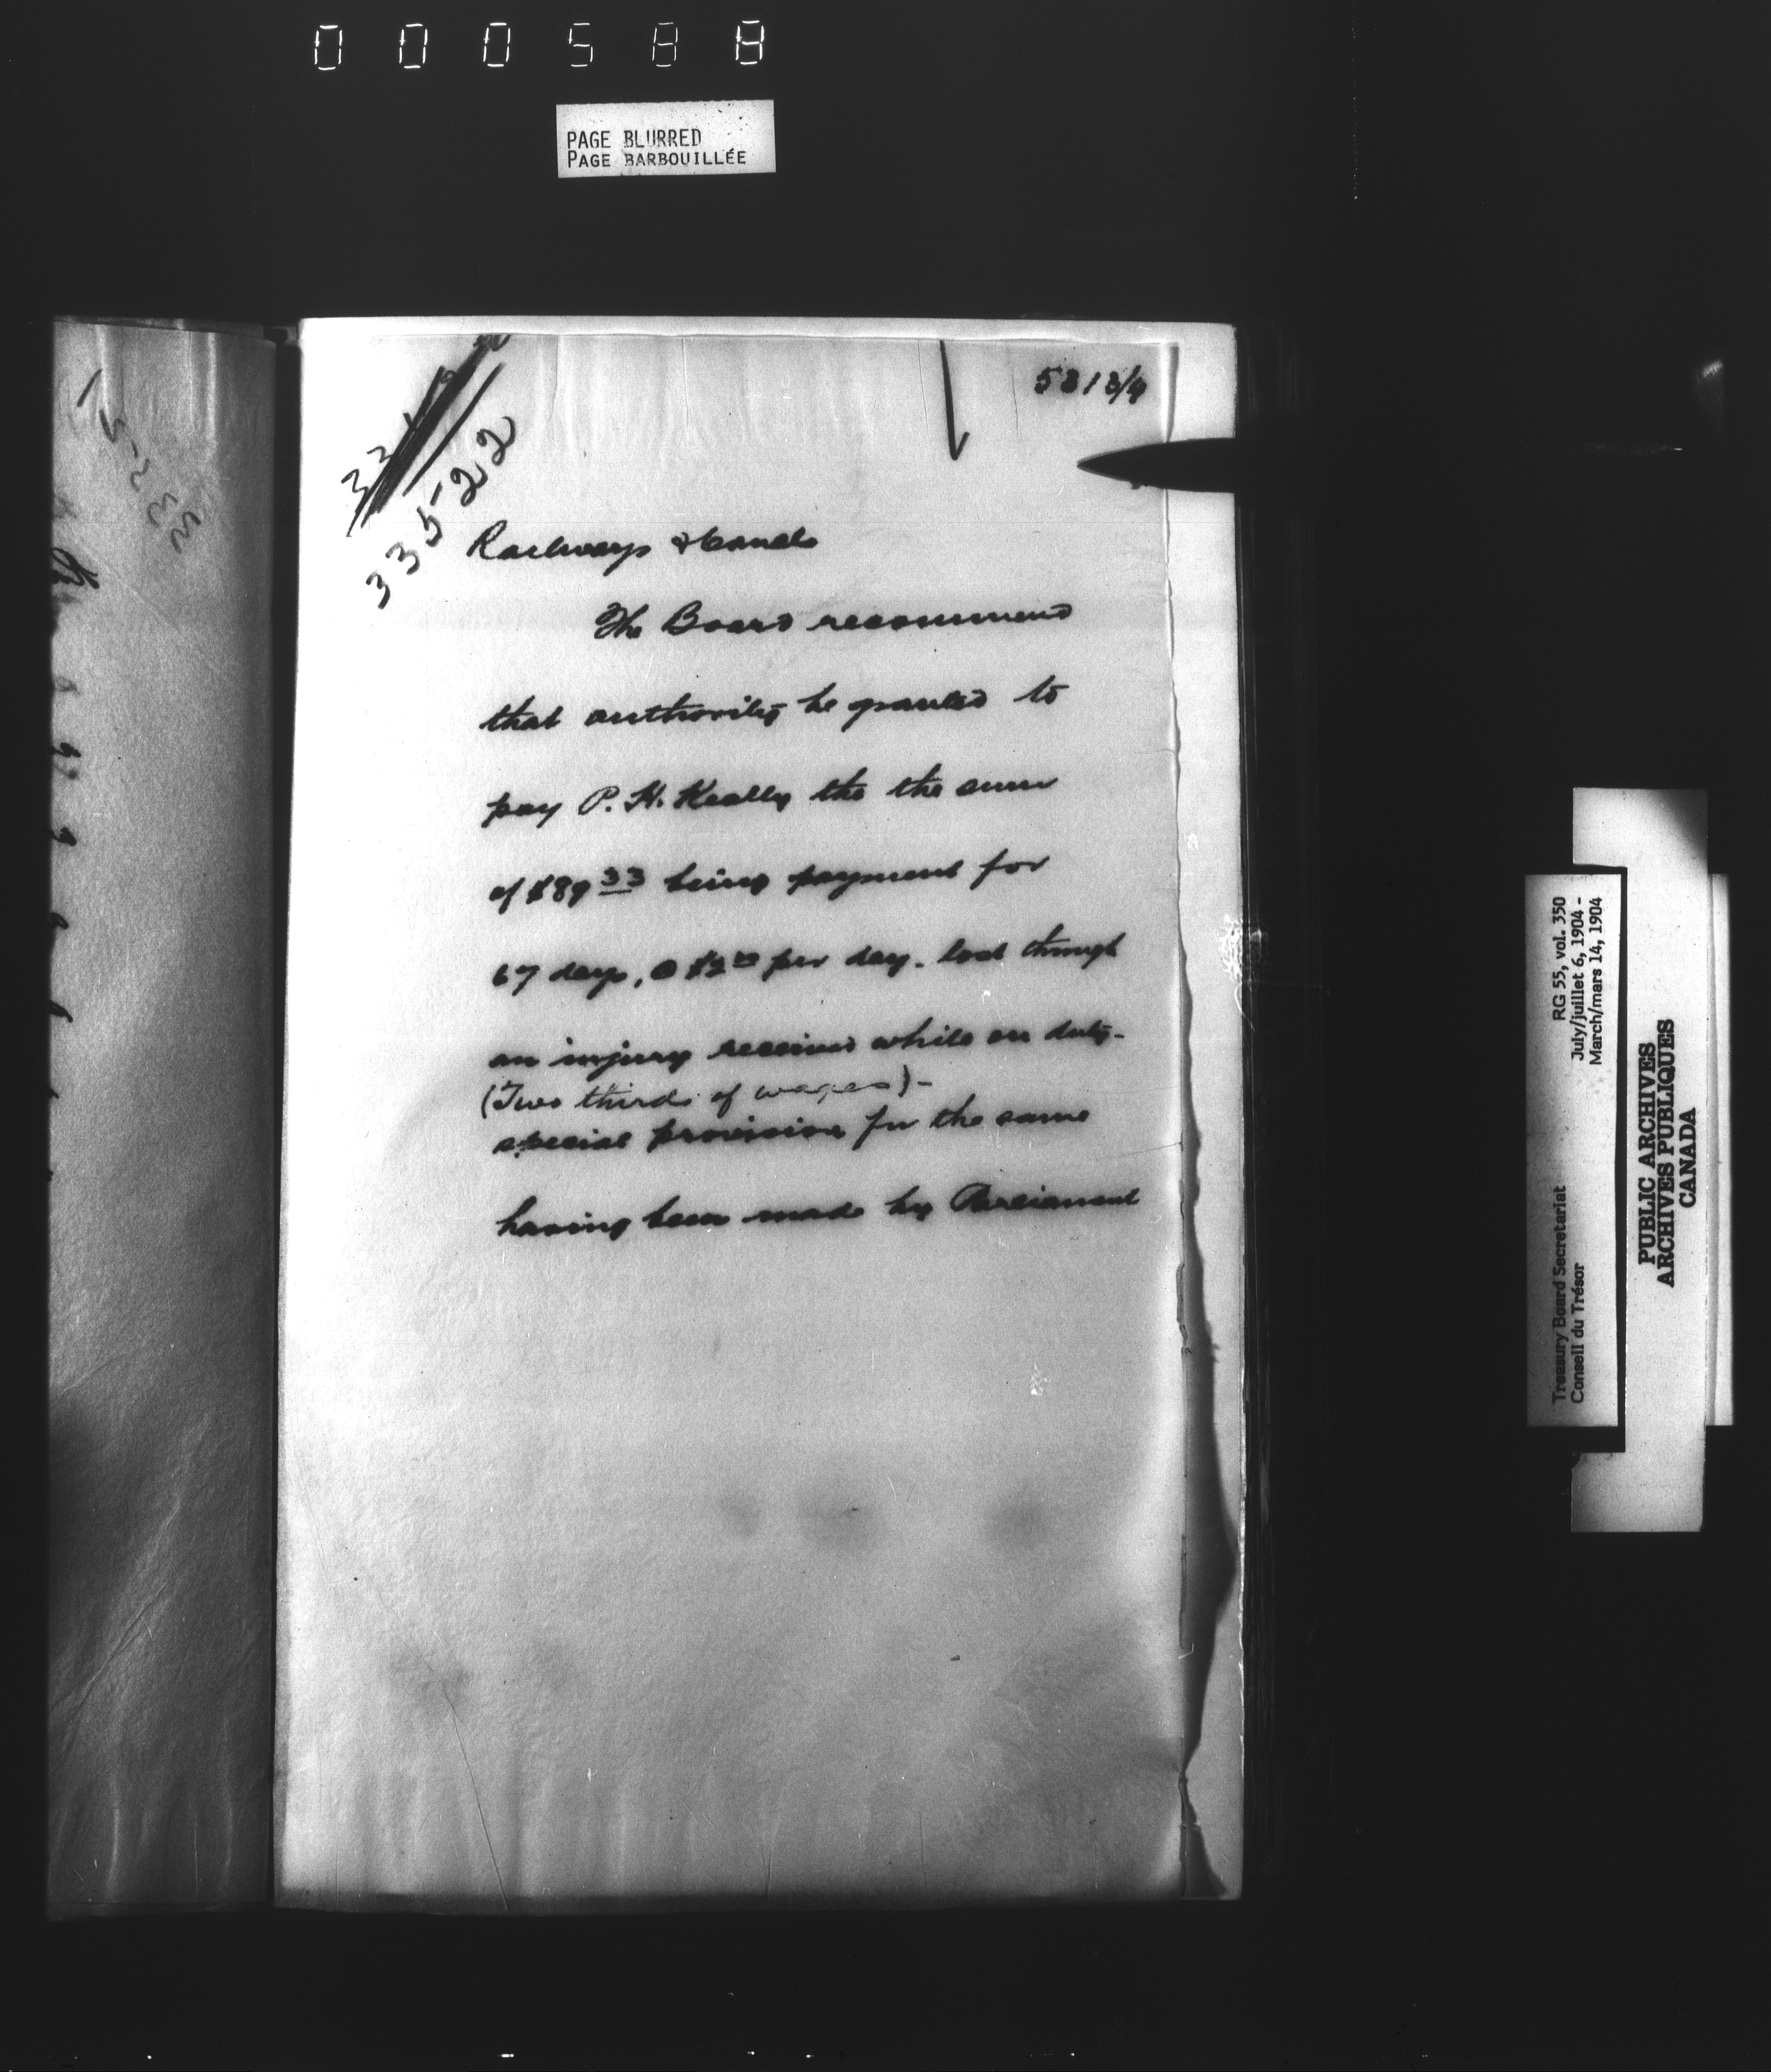 000588
PAGE BLURRED
PAGE BARBOUILLÉE
33522
Railways & Canals
The Board recommend
that authority be granted to
pay P. H. Keally the the sum
of $89 33 being payment for
67 days, @ $2 00 per day. lost through
an injury received while on duty-
(Two thirds of wages)-
special provision for the same
having been made by Parliament
Treasury Board Secretariat RG 55, vol. 350
Conseil du Trésor July/juillet 6, 1904 -
March/mars 14, 1904
PUBLIC ARCHIVES
ARCHIVES PUBLIQUES
CANADA